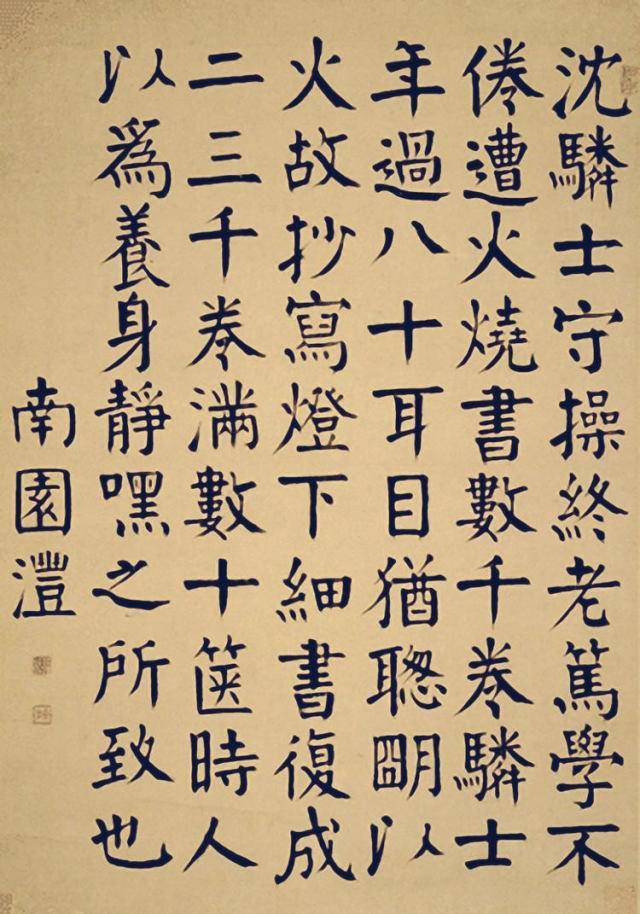 沈驎士守操終老篤學不
倦遭火燒書數千卷驎士
年過八十耳目猶聰朙以
火故抄寫燈下細書復成
二三千卷滿數十篋時人
以爲養身靜嘿之所致也
南園澧